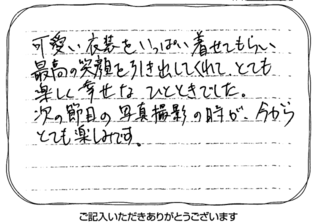 可愛い衣装をいっぱい着せてもらい、
最高の笑顔を引き出してくれて、とても
楽しく幸せなひとときでした。
次の節目の写真撮影の時が、今から
とても楽しみです。
ご記入いただきありがとうございます